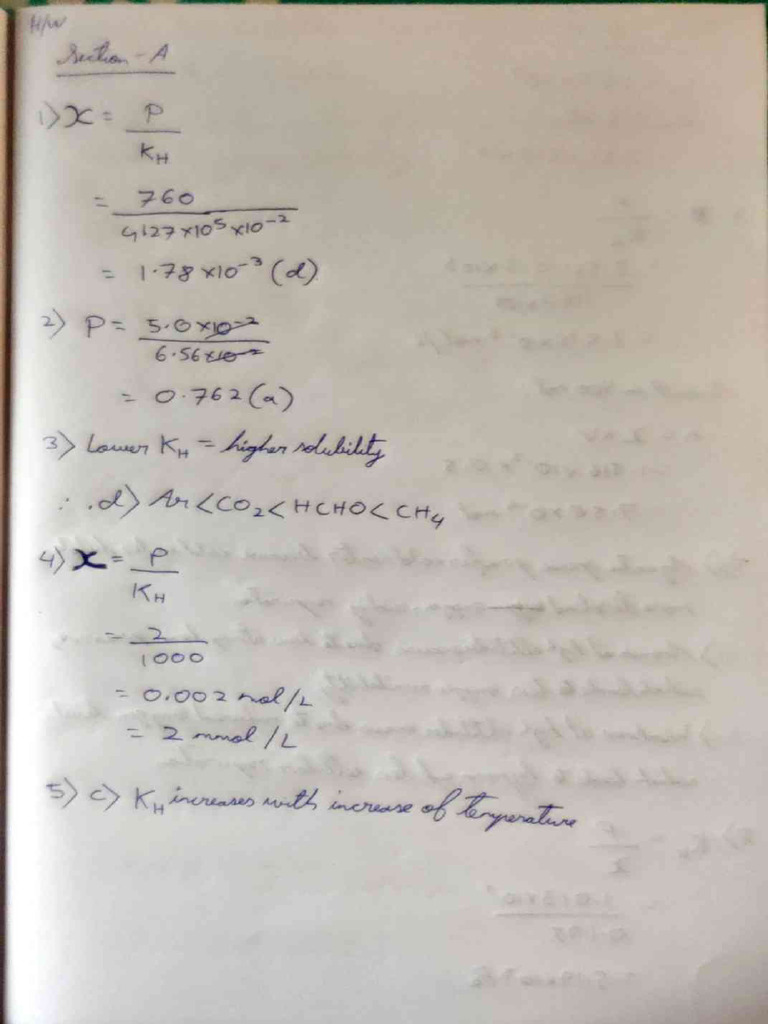 H/W
Section - A
1) x = P / K_H
= 760 / 4.127 × 10^5 × 10^-2
= 1.78 × 10^-3 (d)
2) P = 5.0 × 10^-2 / 6.56 × 10^-2
= 0.762 (a)
3) Lower K_H = higher solubility
∴ d) Ar < CO2 < HCHO < CH4
4) x = P / K_H
= 2 / 1000
= 0.002 mol/L
= 2 mmol/L
5) c) K_H increases with increase of temperature